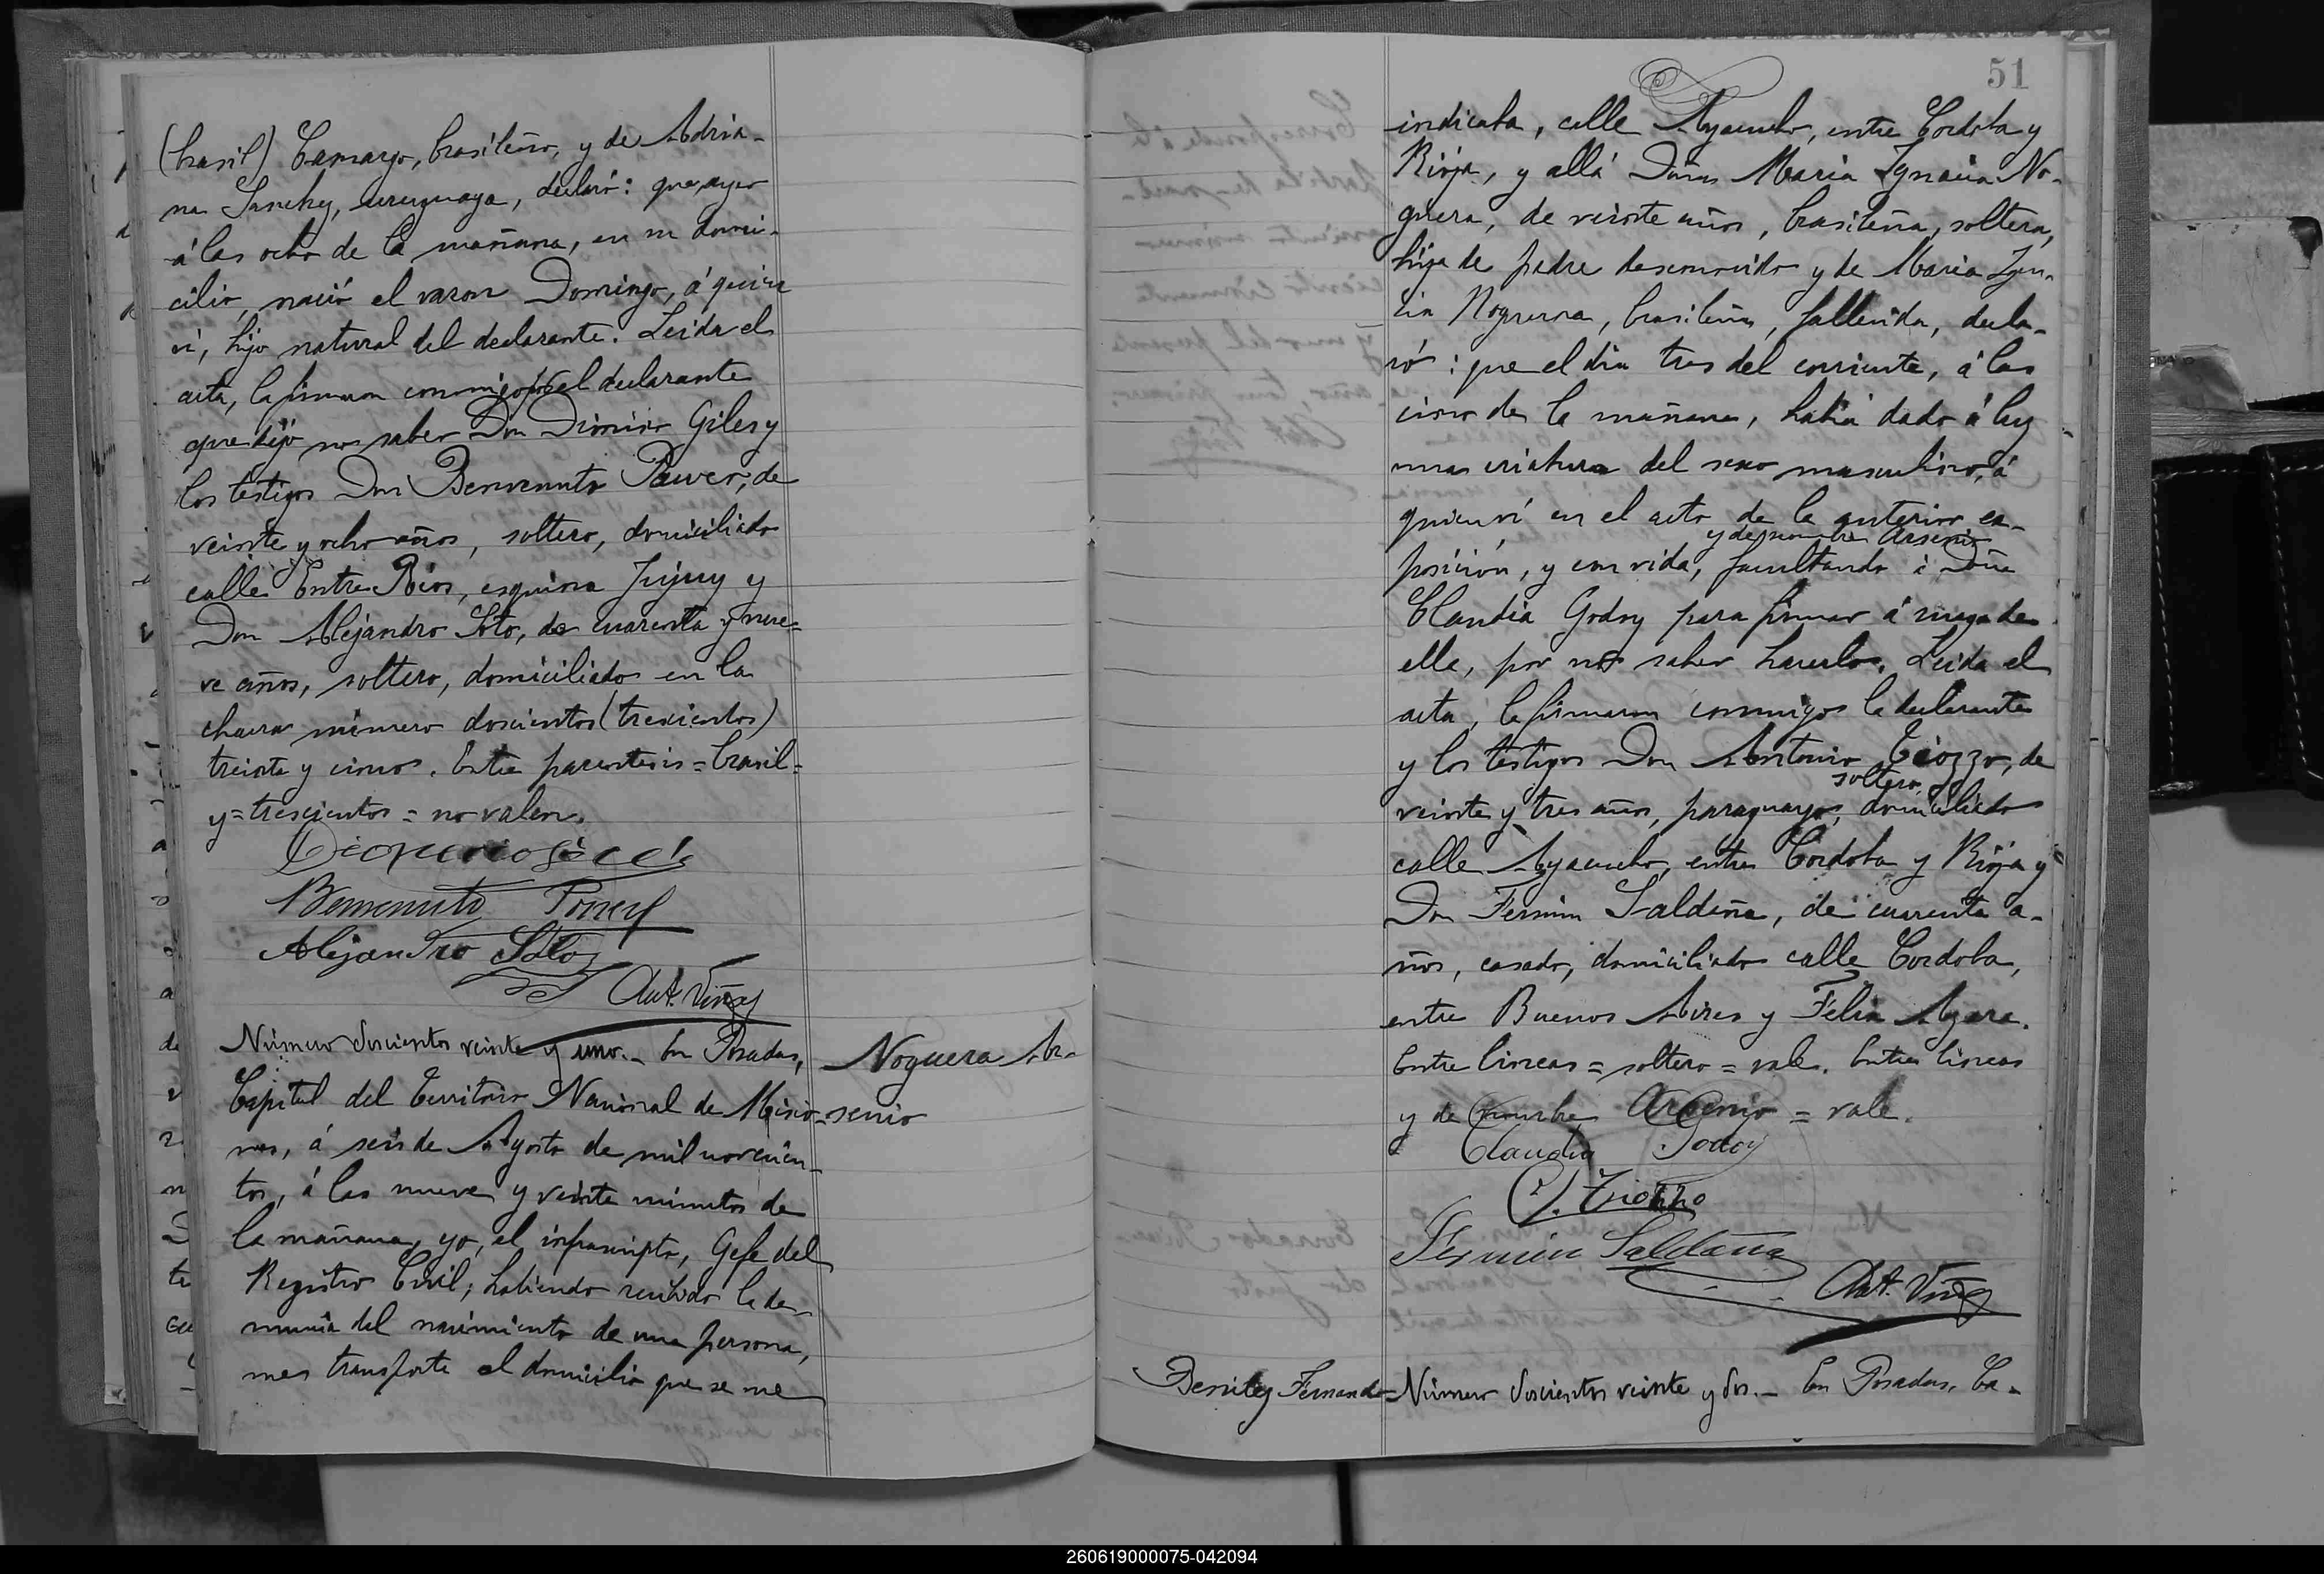 (brasil) Camargo, brasileño, y de Adria-
na Sanchez, uruguaya, declaró: que, ayer
á las ocho de la mañana, en su domi-
cilio, nació el varon Domingo, á quien
vi, hijo natural del declarante. Leida el
acta, la firmaron conmigo por el declarante
que dijo no saber Don Dionisio Giles y
los testigos Don Benvenuto Pawer, de
veinte y ocho años, soltero, domiciliado
calle Entre Rios, esquina Jujuy y
Don Alejandro Soto, de cuarenta y nue-
ve años, soltero, domiciliado en la
chacra número doscientos (trescientos)
treinta y cinco. Entre parentesis = brasil =
y = trescientos = no valen.
Benvenuto
Alejandro Soto
Ant. Viñas
Número doscientos veinte y uno. - En Posadas,
Noguera Ar-
senio
Capital del Territorio Nacional de Misio-
nes, á seis de Agosto de mil novecien-
tos, á las nueve y veinte minutos de
la mañana, yo, el infrascripto, Gefe del
Registro Civil; habiendo recibido la de-
nuncia del nacimiento de una persona,
me transporte al domicilio que se me
51
indicaba, calle Ayacucho, entre Cordoba y
Rioja, y allá Doña Maria Ignacia No-
guera, de veinte años, brasileña, soltera,
hija de padre desconocido y de Maria Igna-
cia Noguera, brasileña, fallecida, decla-
ró: que el dia tres del corriente, á las
cinco de la mañana, habia dado á luz
una criatura del sexo masculino, á
quien vi en el acto de la anterior ex-
y de nombre Arsenio
posición, y con vida, facultando á Doña
Claudia Godoy para firmar á ruego de
ella, por no saber hacerlo. Leida el
acta, la firmaron conmigo la declarante
y los testigos Don Antonio Tiozzo, de
soltero
veinte y tres años, paraguayo, domiciliado
calle Ayacucho, entre Cordoba y Rioja y
Don Fermin Saldaña, de cuarenta a-
ños, casado, domiciliado calle Cordoba,
entre Buenos Aires y Felix Azara.
Entre lineas = soltero = vale. Entre lineas
y de nombre Arsenio = vale.
Claudia Godoy
Fermin Saldaña
Ant. Viñas
Benitez Fernando
Número doscientos veinte y dos. - En Posadas, Ca-
260619000075-042094